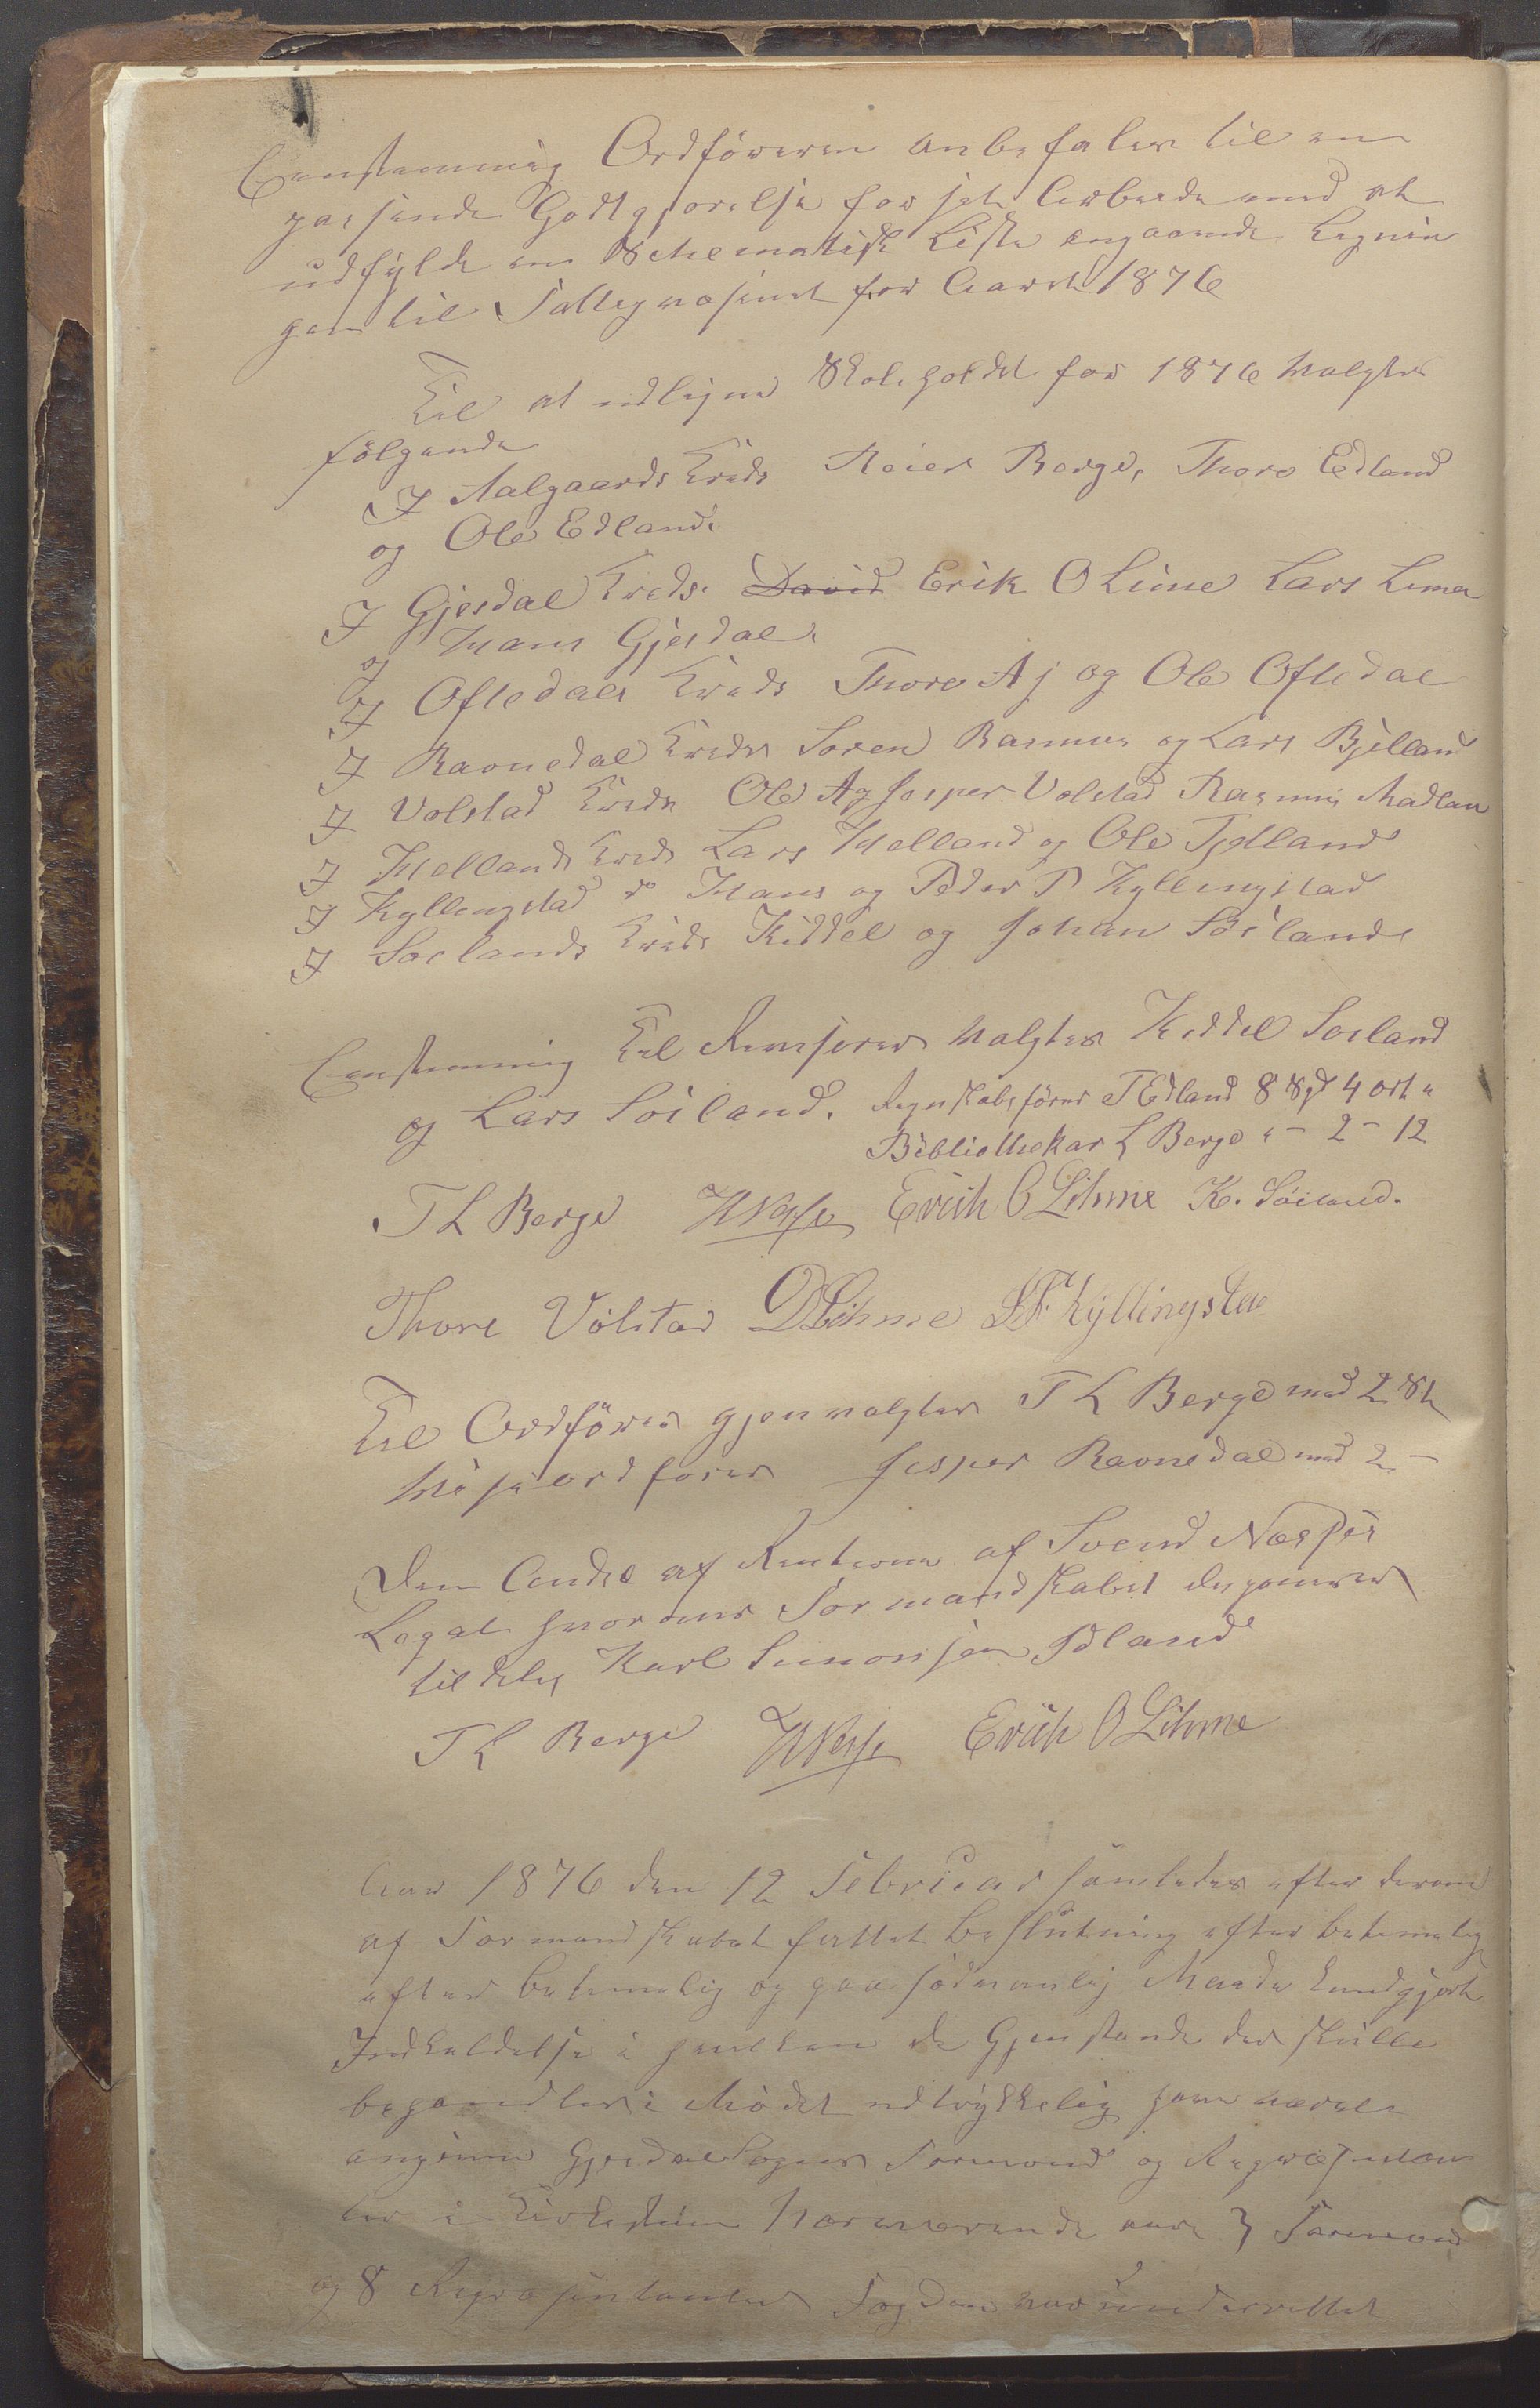 Eenstemmig Ordföreren anbefales til en
passende Godtgjörelse for sit Arbeide med at
udfylde en Schematisk Liste angaaende Lignin
gen til Fattigvæsenet for Aaret 1876
Til at udligne Skoleholdet for 1876 valgtes
fölgende
I Aalgaards Kreds Reier Berge, Thore Edland
og Ole Edland.
I Gjesdal Kreds. David Erik O Lime Lars Lima
og Hans Gjesdal.
I Oftedals Kreds Thore Aj og Ole Oftedal
I Ravnedal Kreds Soren Rasmus og Lars Bjelland
I Volstad Kreds Ole Aj Jesper Volstad Rasmus Madlan
I Mellands Kreds Lars Helland og Ole Tjelland
I Kyllingstad do Hans og Peder P Kyllingstad
I Soelands Kreds Kiddel og Johan Söiland
Eenstemmig Til Revisorer valgtes Kiddel Soeland
og Lars Söiland. Regnskabsförer T Edland 8 Spd 4 ort "
Bibliothekar L Berge " - 2 - 12
T L Berge Erich O Lihme K. Söiland.
Thore Völstad D Lihme Kyllingstad
Til Ordförer gjenvalgtes T L Berge med 2 St
Viseordforer Jesper Ravnedal med 2 -
Den Andel af Renterne af Svend Næsses
Legat hvorover Formandskabet disponerer
tildeles Karl Simonsen Idland
T L Berge Erich O Lihme
Aar 1876 den 12 Februar samledes efter derom
af Formandskabet fattet Beslutning efter betimelig
efter betimelig og paa sædvanlig Maade kundgjort
Indkaldelse i hvilken de Gjenstande der skulle
behandles i Mödet udtrykkelig havde været
angivne Gjesdal Sogns Formænd og Repræsentan
ter i Kirkestuen Nærværende vare 3 Formænd
og 8 Repræsentanter Fogden var underrettet